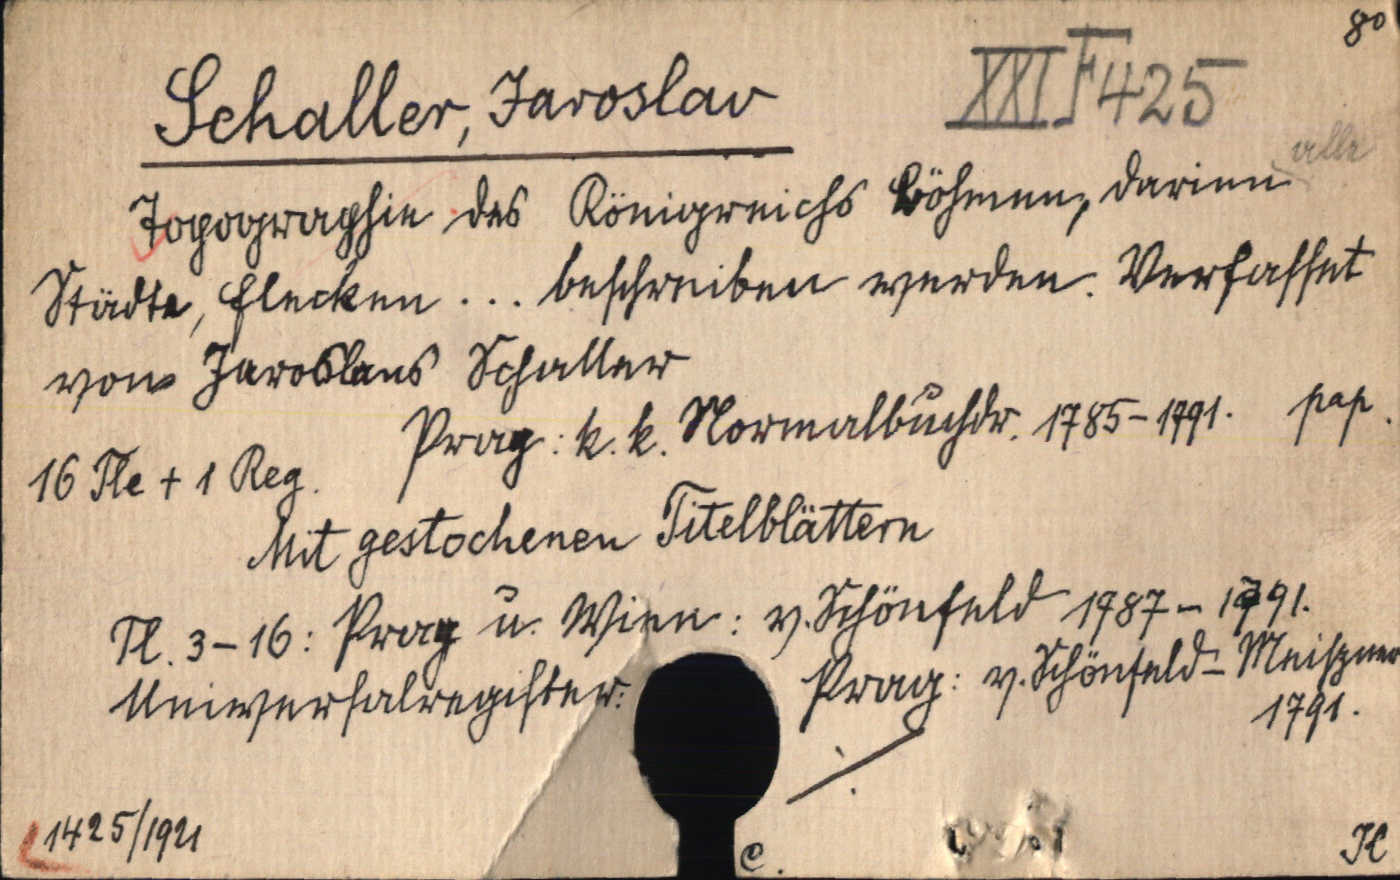 8°
Schaller, Jaroslav XXI F 425
Topographie des Königreichs Böhmen, darinn alle
Städte, Flecken ... beschreiben werden. Verfasset
von Jaroslaus Schaller
Prag: k. k. Normalbuchdr. 1785-1791. pap.
16 Tle + 1 Reg.
Mit gestochenen Titelblättern
Tl. 3-16: Prag u. Wien: v. Schönfeld 1787-1791.
Universalregister: Prag: v. Schönfeld-Meiszner
1791.
1425/1921
C.
K